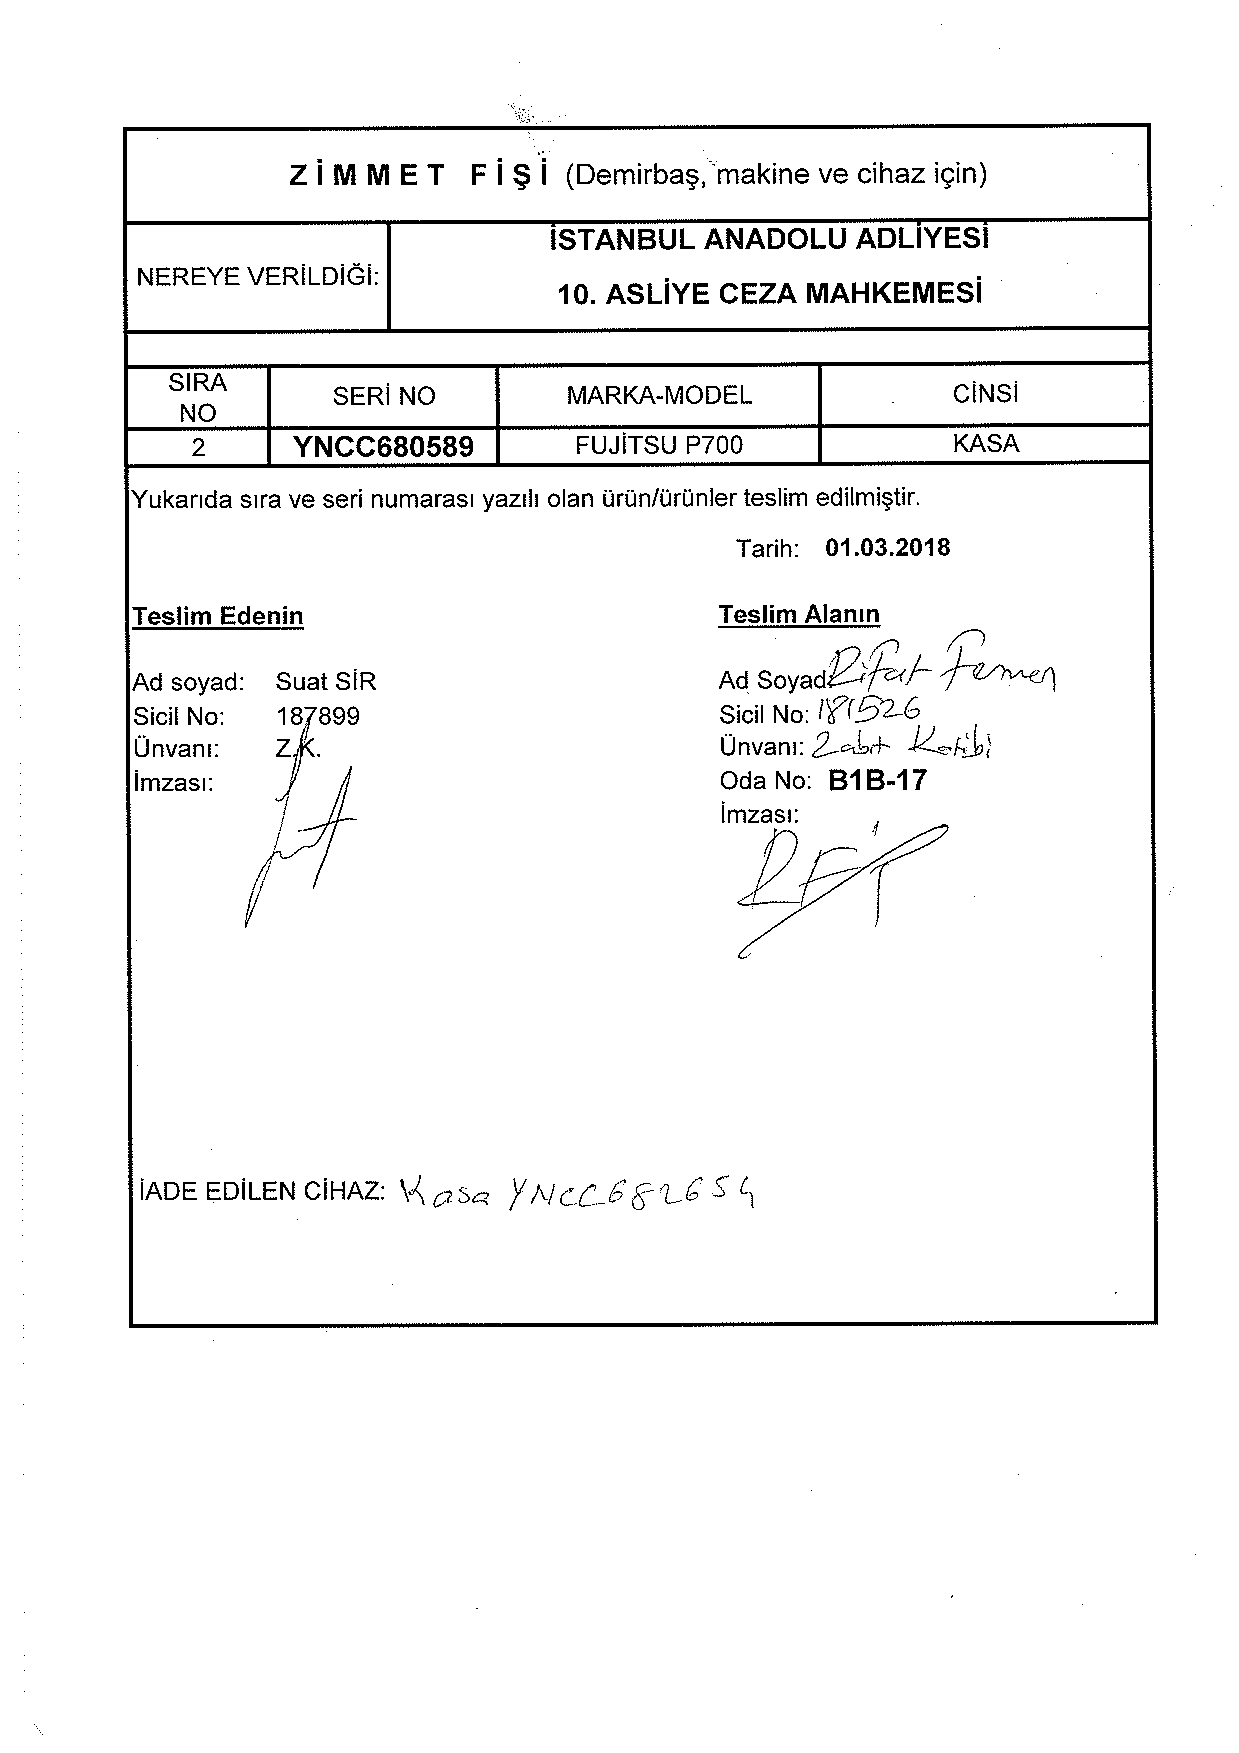 ZİMMET FİŞİ (Demirbaş, makine ve cihaz için)
NEREYE VERİLDİĞİ:
İSTANBUL ANADOLU ADLİYESİ
10. ASLİYE CEZA MAHKEMESİ
SIRA NO SERİ NO MARKA-MODEL CİNSİ
2 YNCC680589 FUJİTSU P700 KASA
Yukarıda sıra ve seri numarası yazılı olan ürün/ürünler teslim edilmiştir.
Tarih: 01.03.2018
Teslim Edenin
Ad soyad: Suat SİR
Sicil No: 187899
Ünvanı: Z.K.
İmzası:
Teslim Alanın
Ad Soyad: Rifat
Sicil No: 181526
Ünvanı: Zabıt Katibi
Oda No: B1B-17
İmzası:
İADE EDİLEN CİHAZ: Kasa YNCC682654